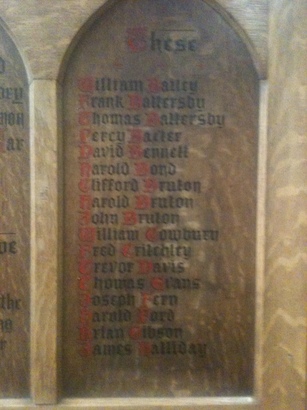 These
William Bailey
Frank Battersby
Thomas Battersby
Percy Baxter
David Bennett
Harold Bond
Clifford Bruton
Harold Bruton
John Bruton
William Cowburn
Fred Critchley
Trevor Davis
Thomas Evans
Joseph Fern
Harold Ford
Brian Gibson
James Halliday
the